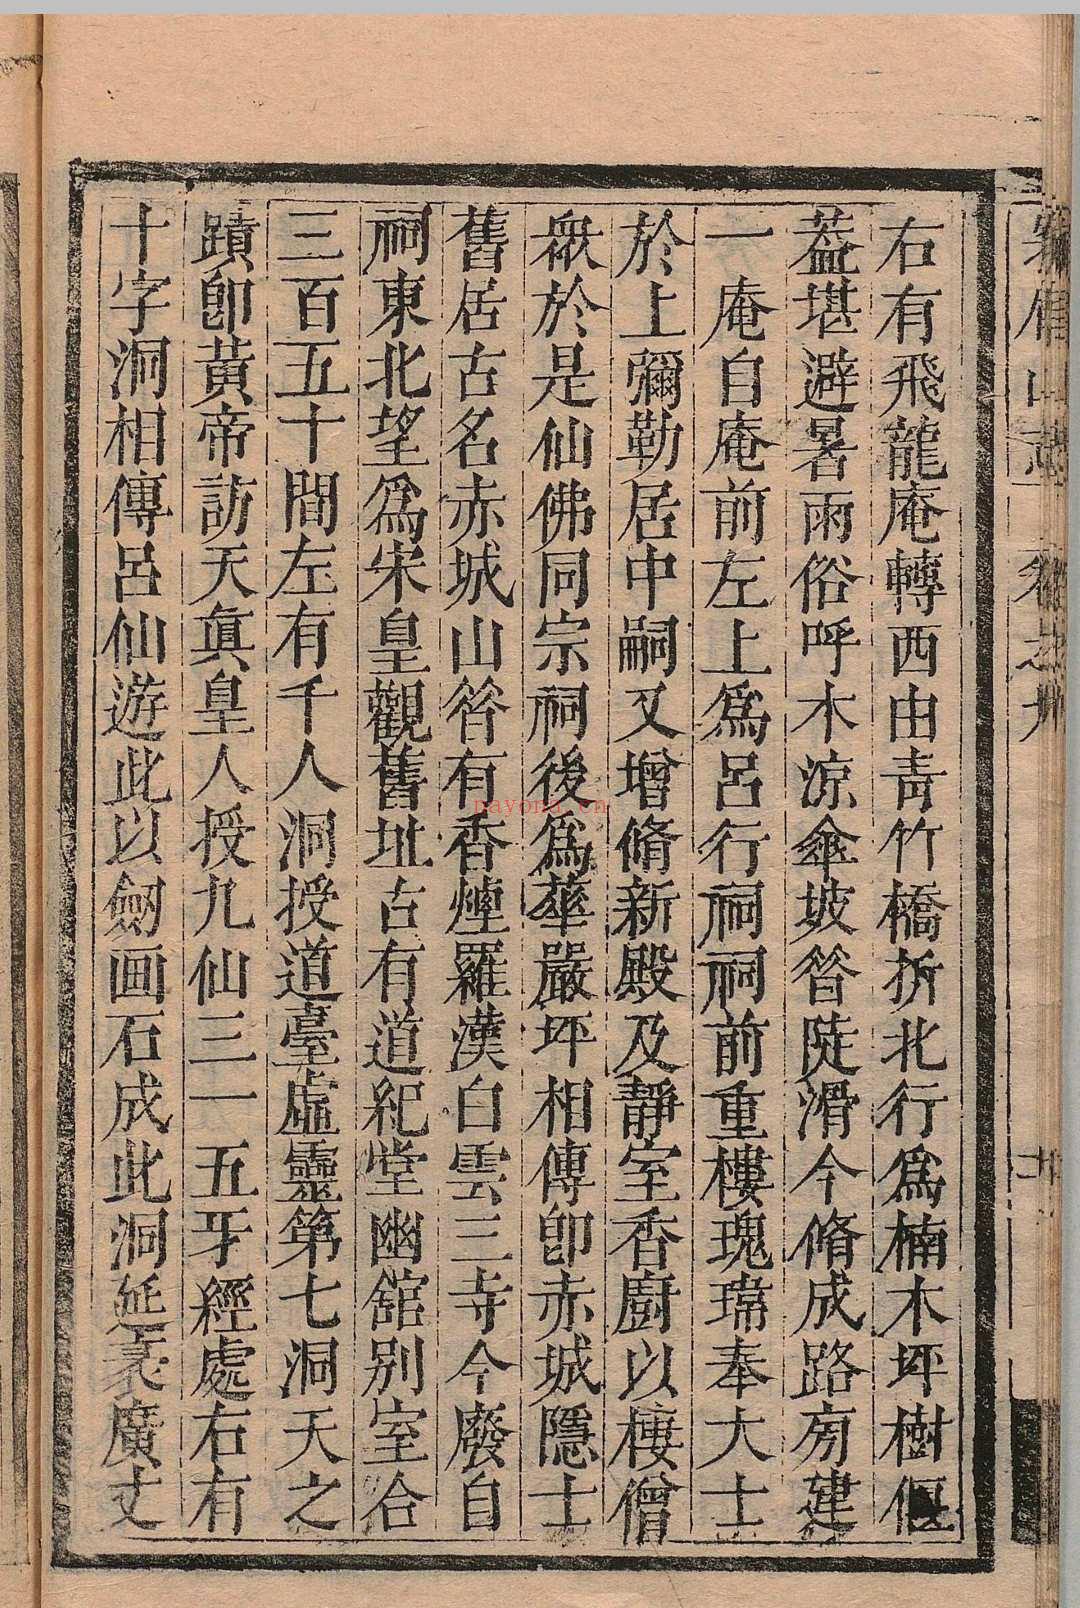 右有飛龍庵轉西由青竹橋折北行爲楠木坪樹偃
葢堪避暑雨俗呼木涼傘坡咎陡滑今脩成路旁建
一庵自庵前左上爲呂行祠祠前重樓瑰瑋奉大士
於上彌勒居中嗣又增脩新殿及靜室香廚以棲僧
衆於是仙佛同宗祠後爲華嚴坪相傳卽赤城隱士
舊居古名赤城山咎有香煙羅漢白雲三寺今廢自
祠東北望爲宋皇觀舊址古有道紀堂幽舘别室合
三百五十間左有千人洞授道臺虛靈第七洞天之
蹟卽黃帝訪天眞皇人授九仙三一五牙經處右有
十字洞相傳呂仙遊此以劒画石成此洞延袤廣丈
nayona.cn